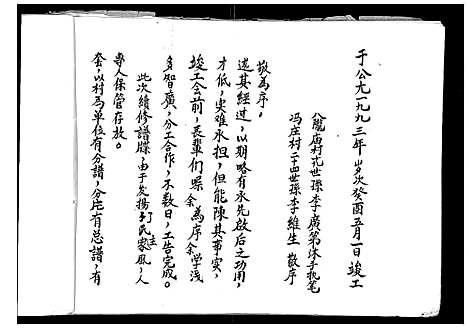 套，以村为单位有分譜，分片有总譜，有
專人保管存放。
此次續修譜牒，由于发揚了民主家風，人
多智廣，分工合作，不数日，工告完成。
竣工会前，長輩们嘱余為序，余学浅
才低，实难承担，但能陳其事实，
述其经过，以期略有承先啟后之功用，
敬為序。
龍庙村 世孫李廣第 沐手執笔
冯庄村二十四世孫李維生 敬序
于公元一九九三年歲次癸酉五月一日竣工